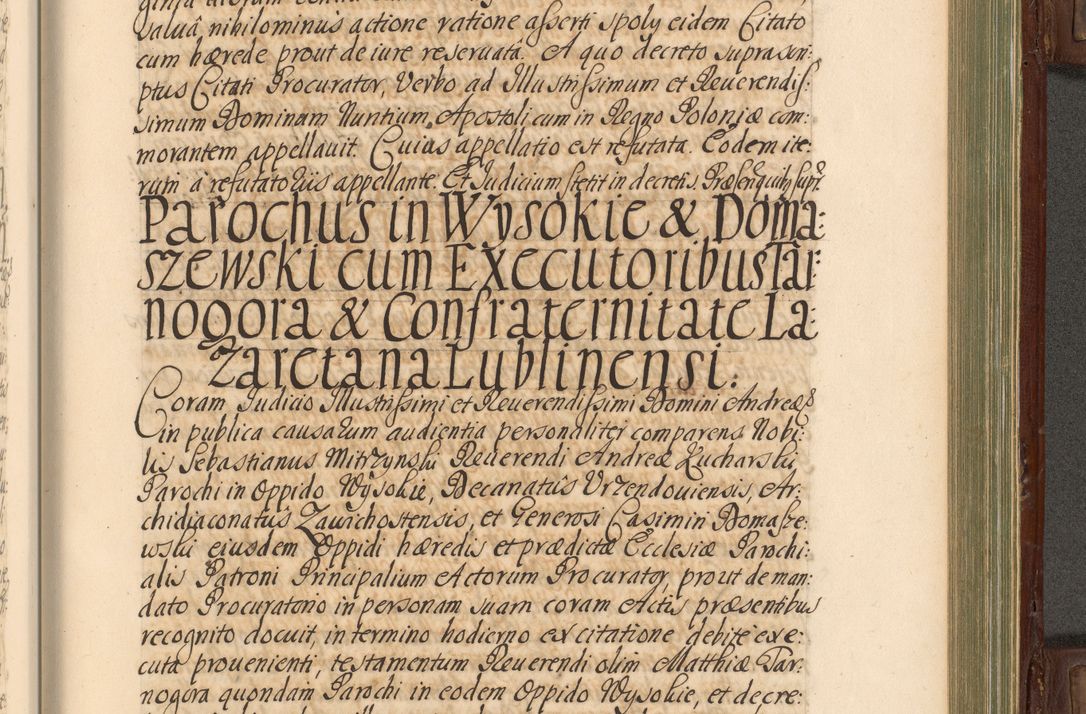 salua nihilominus actione ratione asserti spoly eidem Citato
cum hærede prout de iure reseruata. A quo decreto suprascri:
ptus Citati Procurator, Verbo ad Illustrissimum et Reuerendis:
simum Dominum Nuntium Apostolicum in Regno Poloniæ com:
morantem appellauit. Cuius appellatio est refutata. Eodem ite:
rum a refutatorijs appellante. Et Judicium stetit in decretis. Præsen[...] supr.
Parochus in Wysokie & Doma:
szewski cum Executoribus Tar:
nogora & Confraternitate La:
zaretana Lublinensi.
Coram Judicio Illustrissimi et Reuerendissimi Domini Andreæ
in publica causarum audientia personaliter comparens Nobi:
lis Sebastianus Mitrzynski Reuerendi Andreæ Zucharski,
Parochi in Oppido Wysokie, Decanatûs Urzendouiensis, Ar:
chidiaconatûs Zawichostensis, et Generosi Casimiri Domasze:
wski eiusdem Oppidi hæredis et prædictæ Ecclesiæ Parochi:
alis Patroni Principalium Actorum Procurator, prout de man:
dato Procuratorio in personam suam coram Actis præsentibus
recognito docuit, in termino hodierno ex citatione debite exe:
cuta prouenienti, testamentum Reuerendi olim Matthiæ Tar:
nogora quondam Parochi in eodem Oppido Wysokie, et decre: